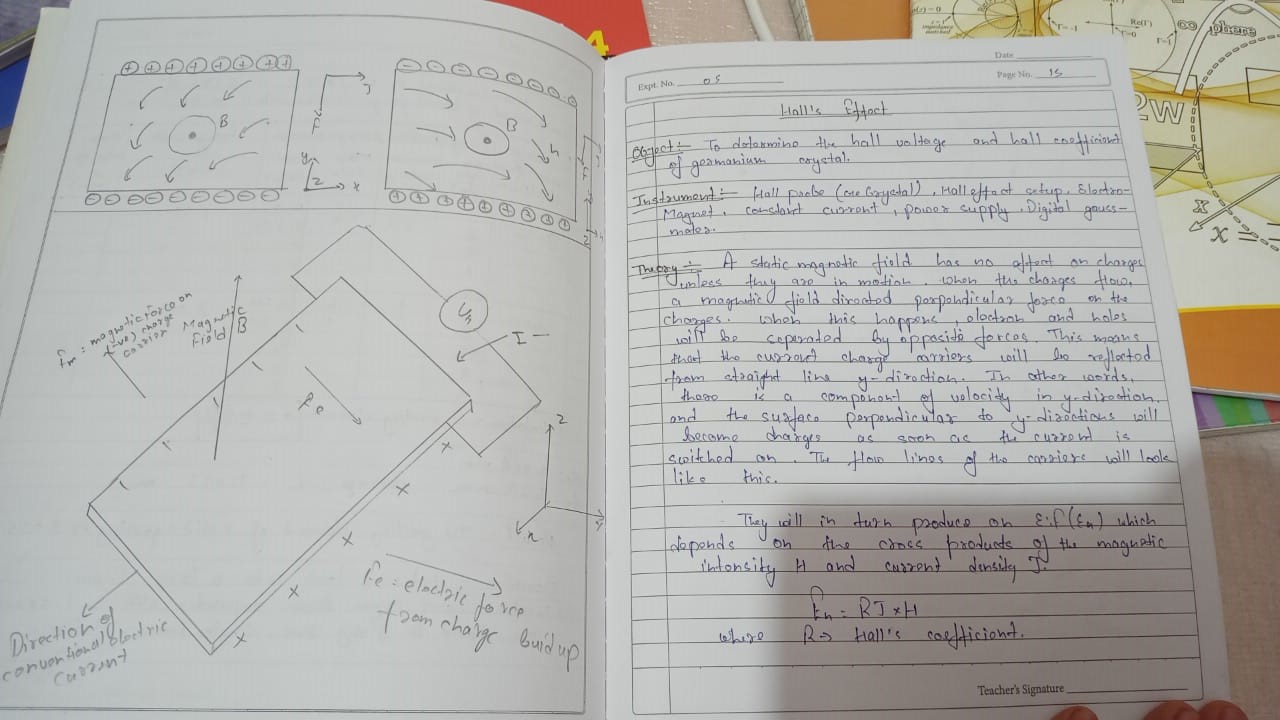 B
F
y
z
x
B
Fm : magnetic force on
(+ve) charge
carrier
Magnetic
Field B
I
Fe
z
x
y
Fe : electric force
from charge buid up
Direction of
conventional electric
current
4
Date
Expt. No. 05
Page No. 15
Hall's Effect
Object :- To determine the hall voltage and hall coefficient
of germanium crystal.
Instrument :- Hall probe (Ge Crystal), Hall effect setup, Electro-
Magnet, constant current, power supply, Digital gauss-
meter.
Theory :- A static magnetic field has no effect on charges
unless they are in motion. when the charges flow,
a magnetic field directed perpendicular force on the
charges. when this happens, electron and holes
will be seperated by opposite forces. This means
that the current charge carriers will be reflected
from straight line y-direction. In other words,
there is a component of velocity in y-direction
and the surface perpendicular to y-directions will
become charges as soon as the current is
switched on. The flow lines of the carriers will look
like this.
They will in turn produce an E.f (En) which
depends on the cross products of the magnetic
intensity H and current density J.
En = RJ×H
where R → Hall's coefficient.
Teacher's Signature
Re(Γ)
∞ sphere
2W
x
x =